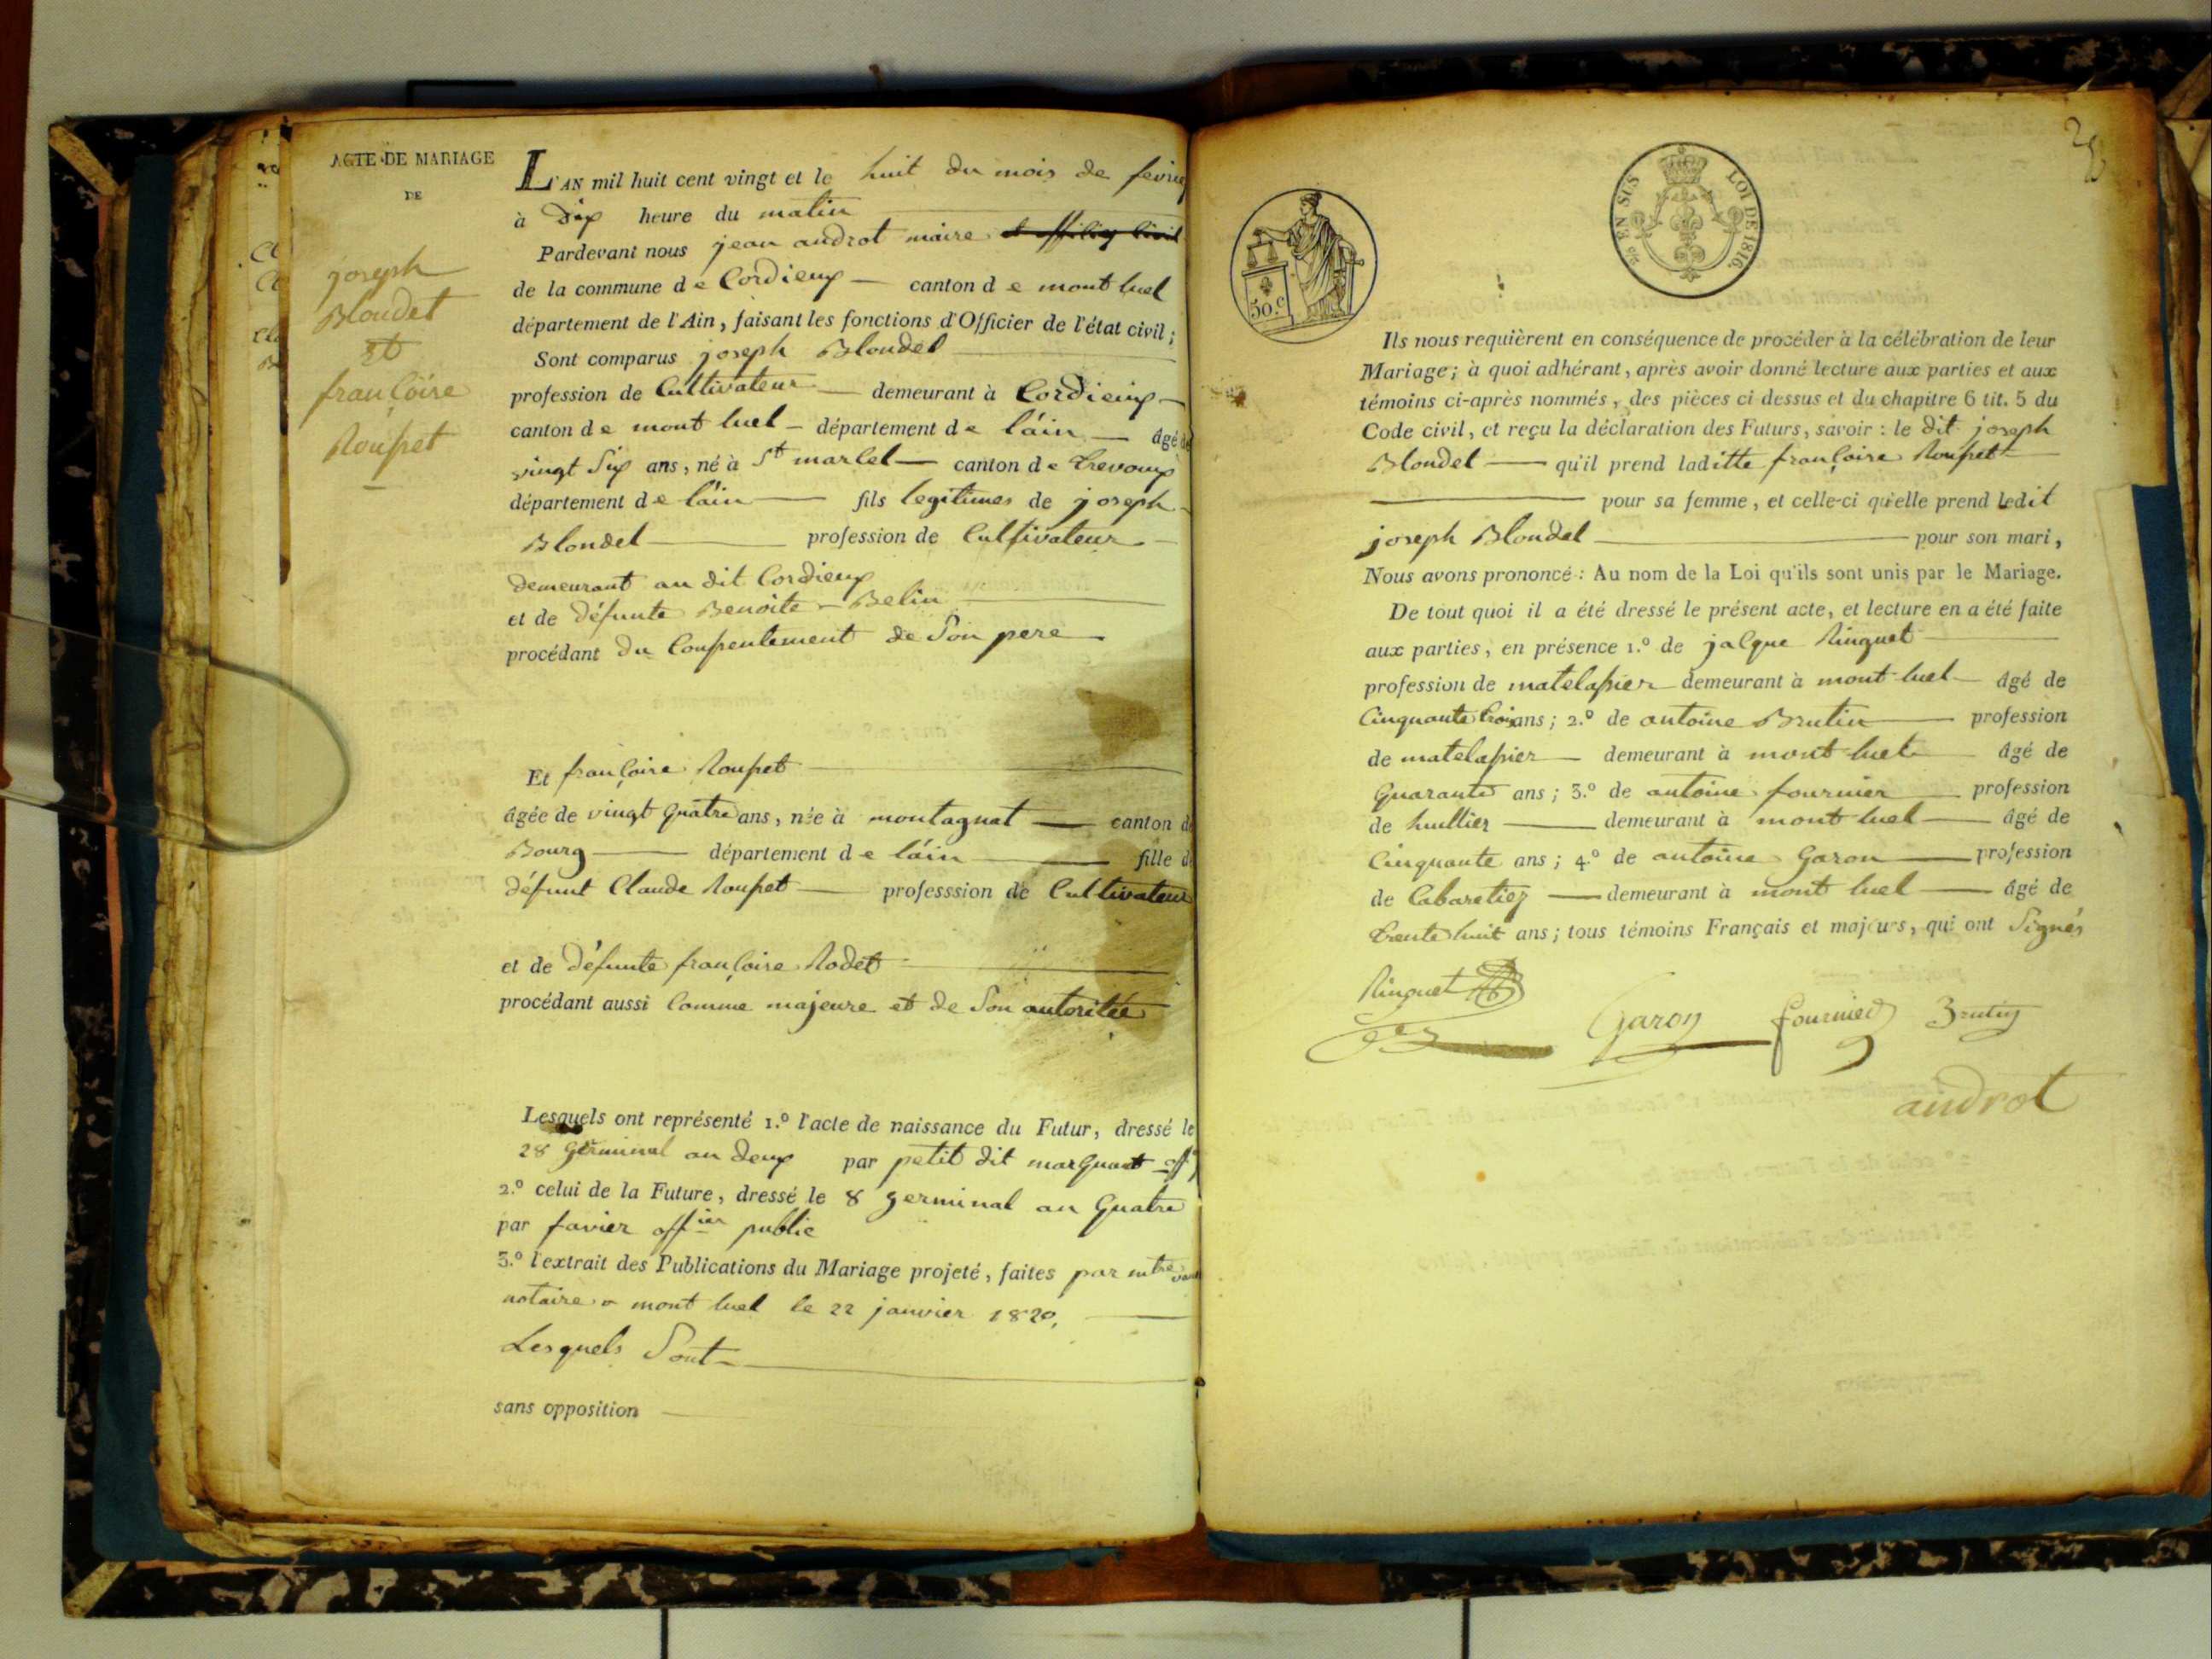 ACTE DE MARIAGE
DE
joseph
Blondet
Et
françoise
Rousset
L'AN mil huit cent vingt et le huit du mois de fevrier
à dix heure du matin
Pardevant nous jean androt maire
de la commune de Cordieux canton de mont luel
département de l'Ain, faisant les fonctions d'Officier de l'état civil;
Sont comparus joseph Blondel
profession de Cultivateur demeurant à Cordieux
canton de mont luel département de l'ain âgé de
vingt six ans, né à St marcel canton de trevoux
département de l'ain fils legitimes de joseph
Blondel profession de Cultivateur
demeurant au dit Cordieux
et de défunte Benoite Belin
procédant du Consentement de son pere
Et françoise Rousset
âgée de vingt quatre ans, née à montagnat canton de
Bourg département de l'ain fille de
défunt Claude Rousset professsion de Cultivateur
et de défunte françoise Rodet
procédant aussi Comme majeure et de son autoritée
Lesquels ont représenté 1.º l'acte de naissance du Futur, dressé le
28 germinal an deux par petit dit marquant off
2.º celui de la Future, dressé le 8 germinal an quatre
par favier offier public
3.º l'extrait des Publications du Mariage projeté, faites par
notaire a mont luel le 22 janvier 1820,
Lesquels sont
sans opposition
50.c
EN SUS
LOI DE 1816.
Ils nous requièrent en conséquence de procéder à la célébration de leur
Mariage; à quoi adhérant, après avoir donné lecture aux parties et aux
témoins ci-après nommés, des pièces ci dessus et du chapitre 6 tit. 5 du
Code civil, et reçu la déclaration des Futurs, savoir : le dit joseph
Blondel qu'il prend laditte françoise Rousset
pour sa femme, et celle-ci qu'elle prend ledit
joseph Blondel pour son mari,
Nous avons prononcé : Au nom de la Loi qu'ils sont unis par le Mariage.
De tout quoi il a été dressé le présent acte, et lecture en a été faite
aux parties, en présence 1.º de jacque Ringuet
profession de matelassier demeurant à mont luel âgé de
Cinquante trois ans; 2.º de antoine Brutin profession
de matelassier demeurant à mont luel âgé de
quarante ans; 3.º de antoine fournier profession
de huillier demeurant à mont luel âgé de
Cinquante ans; 4.º de antoine Garon profession
de Cabaretier demeurant à mont luel âgé de
trente huit ans; tous témoins Français et majeurs, qui ont signés
Ringuet
Garon fournier Brutin
androt